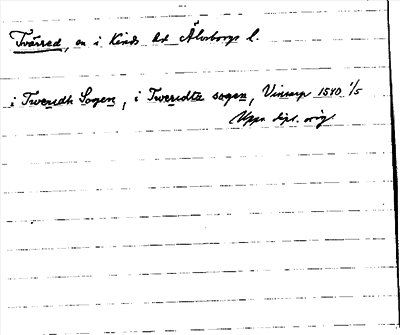 Tvärred, sn i Kinds hd Älvsborgs l.
i Tweredh Sogen, i Tweredta sogen, Vinarp 1540 1/5
Uppr dipl. orig.